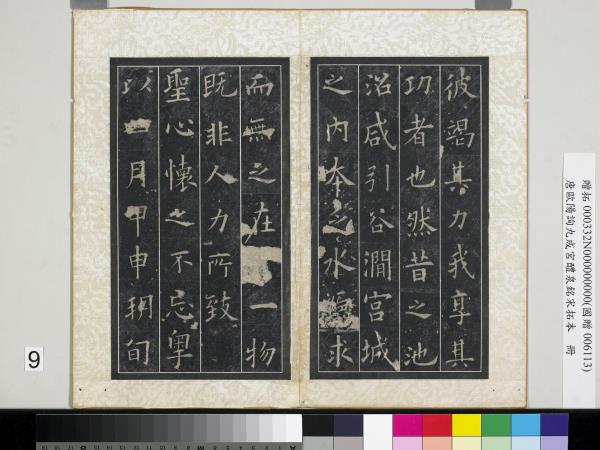 彼竭其力我享其
功者也然昔之池
沼咸引谷澗宮城
之内本乏水源求
而無之在一物
既非人力所致
聖心懷之不忘粤
以四月甲申朔旬
贈拓 000332N000000000(國贈 006113)
唐歐陽詢九成宮醴泉銘宋拓本 冊
9